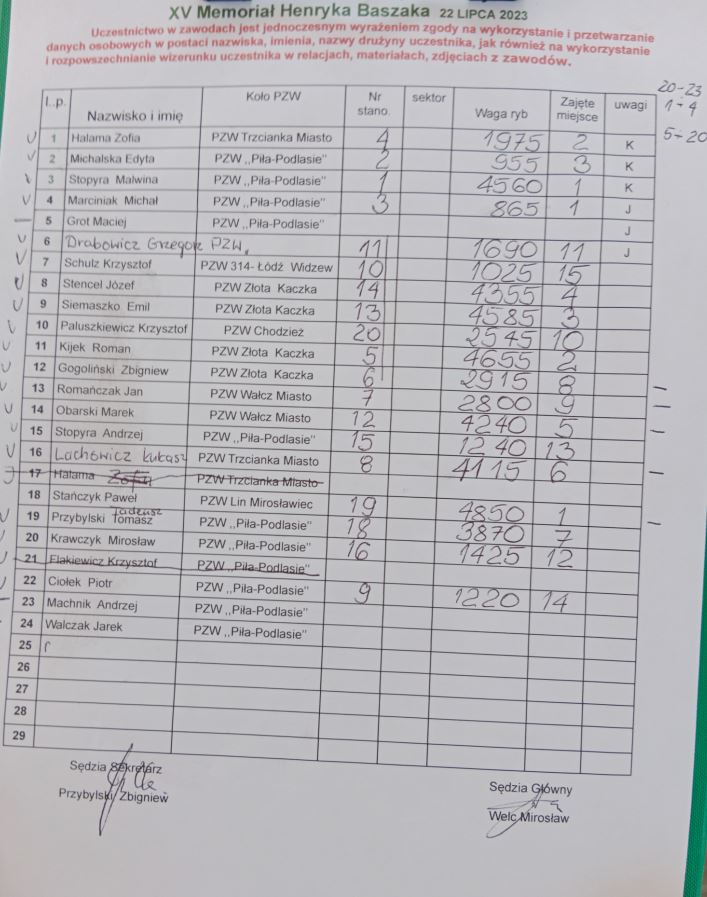 XV Memoriał Henryka Baszaka 22 LIPCA 2023
Uczestnictwo w zawodach jest jednoczesnym wyrażeniem zgody na wykorzystanie i przetwarzanie
danych osobowych w postaci nazwiska, imienia, nazwy drużyny uczestnika, jak również na wykorzystanie
i rozpowszechnianie wizerunku uczestnika w relacjach, materiałach, zdjęciach z zawodów.
20-23
1-4
5-20
L.p. Nazwisko i imię Koło PZW Nr stano. sektor Waga ryb Zajęte miejsce uwagi
1 Halama Zofia PZW Trzcianka Miasto 4 1975 2 K
2 Michalska Edyta PZW „Piła-Podlasie" 2 955 3 K
3 Stopyra Malwina PZW „Piła-Podlasie" 1 4560 1 K
4 Marciniak Michał PZW „Piła-Podlasie" 3 865 1 J
5 Grot Maciej PZW „Piła-Podlasie" J
6 Drabowicz Grzegorz PZW. 11 1690 11 J
7 Schulz Krzysztof PZW 314- Łódź Widzew 10 1025 15
8 Stencel Józef PZW Złota Kaczka 14 4355 4
9 Siemaszko Emil PZW Złota Kaczka 13 4585 3
10 Paluszkiewicz Krzysztof PZW Chodzież 20 2545 10
11 Kijek Roman PZW Złota Kaczka 5 4655 2
12 Gogoliński Zbigniew PZW Złota Kaczka 6 2915 8
13 Romańczak Jan PZW Wałcz Miasto 7 2800 9
14 Obarski Marek PZW Wałcz Miasto 12 4240 5
15 Stopyra Andrzej PZW „Piła-Podlasie" 15 1240 13
16 Lachowicz Łukasz PZW Trzcianka Miasto 8 4115 6
17 Halama Zofia PZW Trzcianka Miasto
18 Stańczyk Paweł PZW Lin Mirosławiec 19 4850 1
19 Przybylski Tomasz Tadeusz PZW „Piła-Podlasie" 18 3870 7
20 Krawczyk Mirosław PZW „Piła-Podlasie" 16 1425 12
21 Flakiewicz Krzysztof PZW „Piła-Podlasie"
22 Ciołek Piotr PZW „Piła-Podlasie" 9 1220 14
23 Machnik Andrzej PZW „Piła-Podlasie"
24 Walczak Jarek PZW „Piła-Podlasie"
25
26
27
28
29
Sędzia Sekretarz
Przybylski Zbigniew
Sędzia Główny
Welc Mirosław